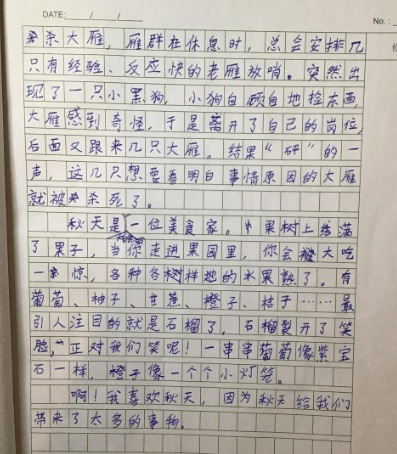 DATE: / /
No.:
杀大雁，雁群在休息时，总会安排几
只有经验、反应快的老雁放哨。突然出
现了一只小黑狗，小狗自顾自地捡东西，
大雁感到奇怪，于是离开了自己的岗位，
后面又跟来几只大雁。结果“砰”的一
声，这几只想要看明白事情原因的大雁
就被杀死了。
秋天是一位美食家。果树上结满
了果子，当你走进果园里，你会被大吃
一惊，各种各样地的水果熟了。有
葡萄、柚子、甘蔗、橙子、桔子……最
引人注目的就是石榴了，石榴裂开了笑
脸，正对我们笑呢！一串串葡萄像紫宝
石一样，橙子像一个个小灯笼。
啊！我喜欢秋天，因为秋天给我们
带来了太多的事物。